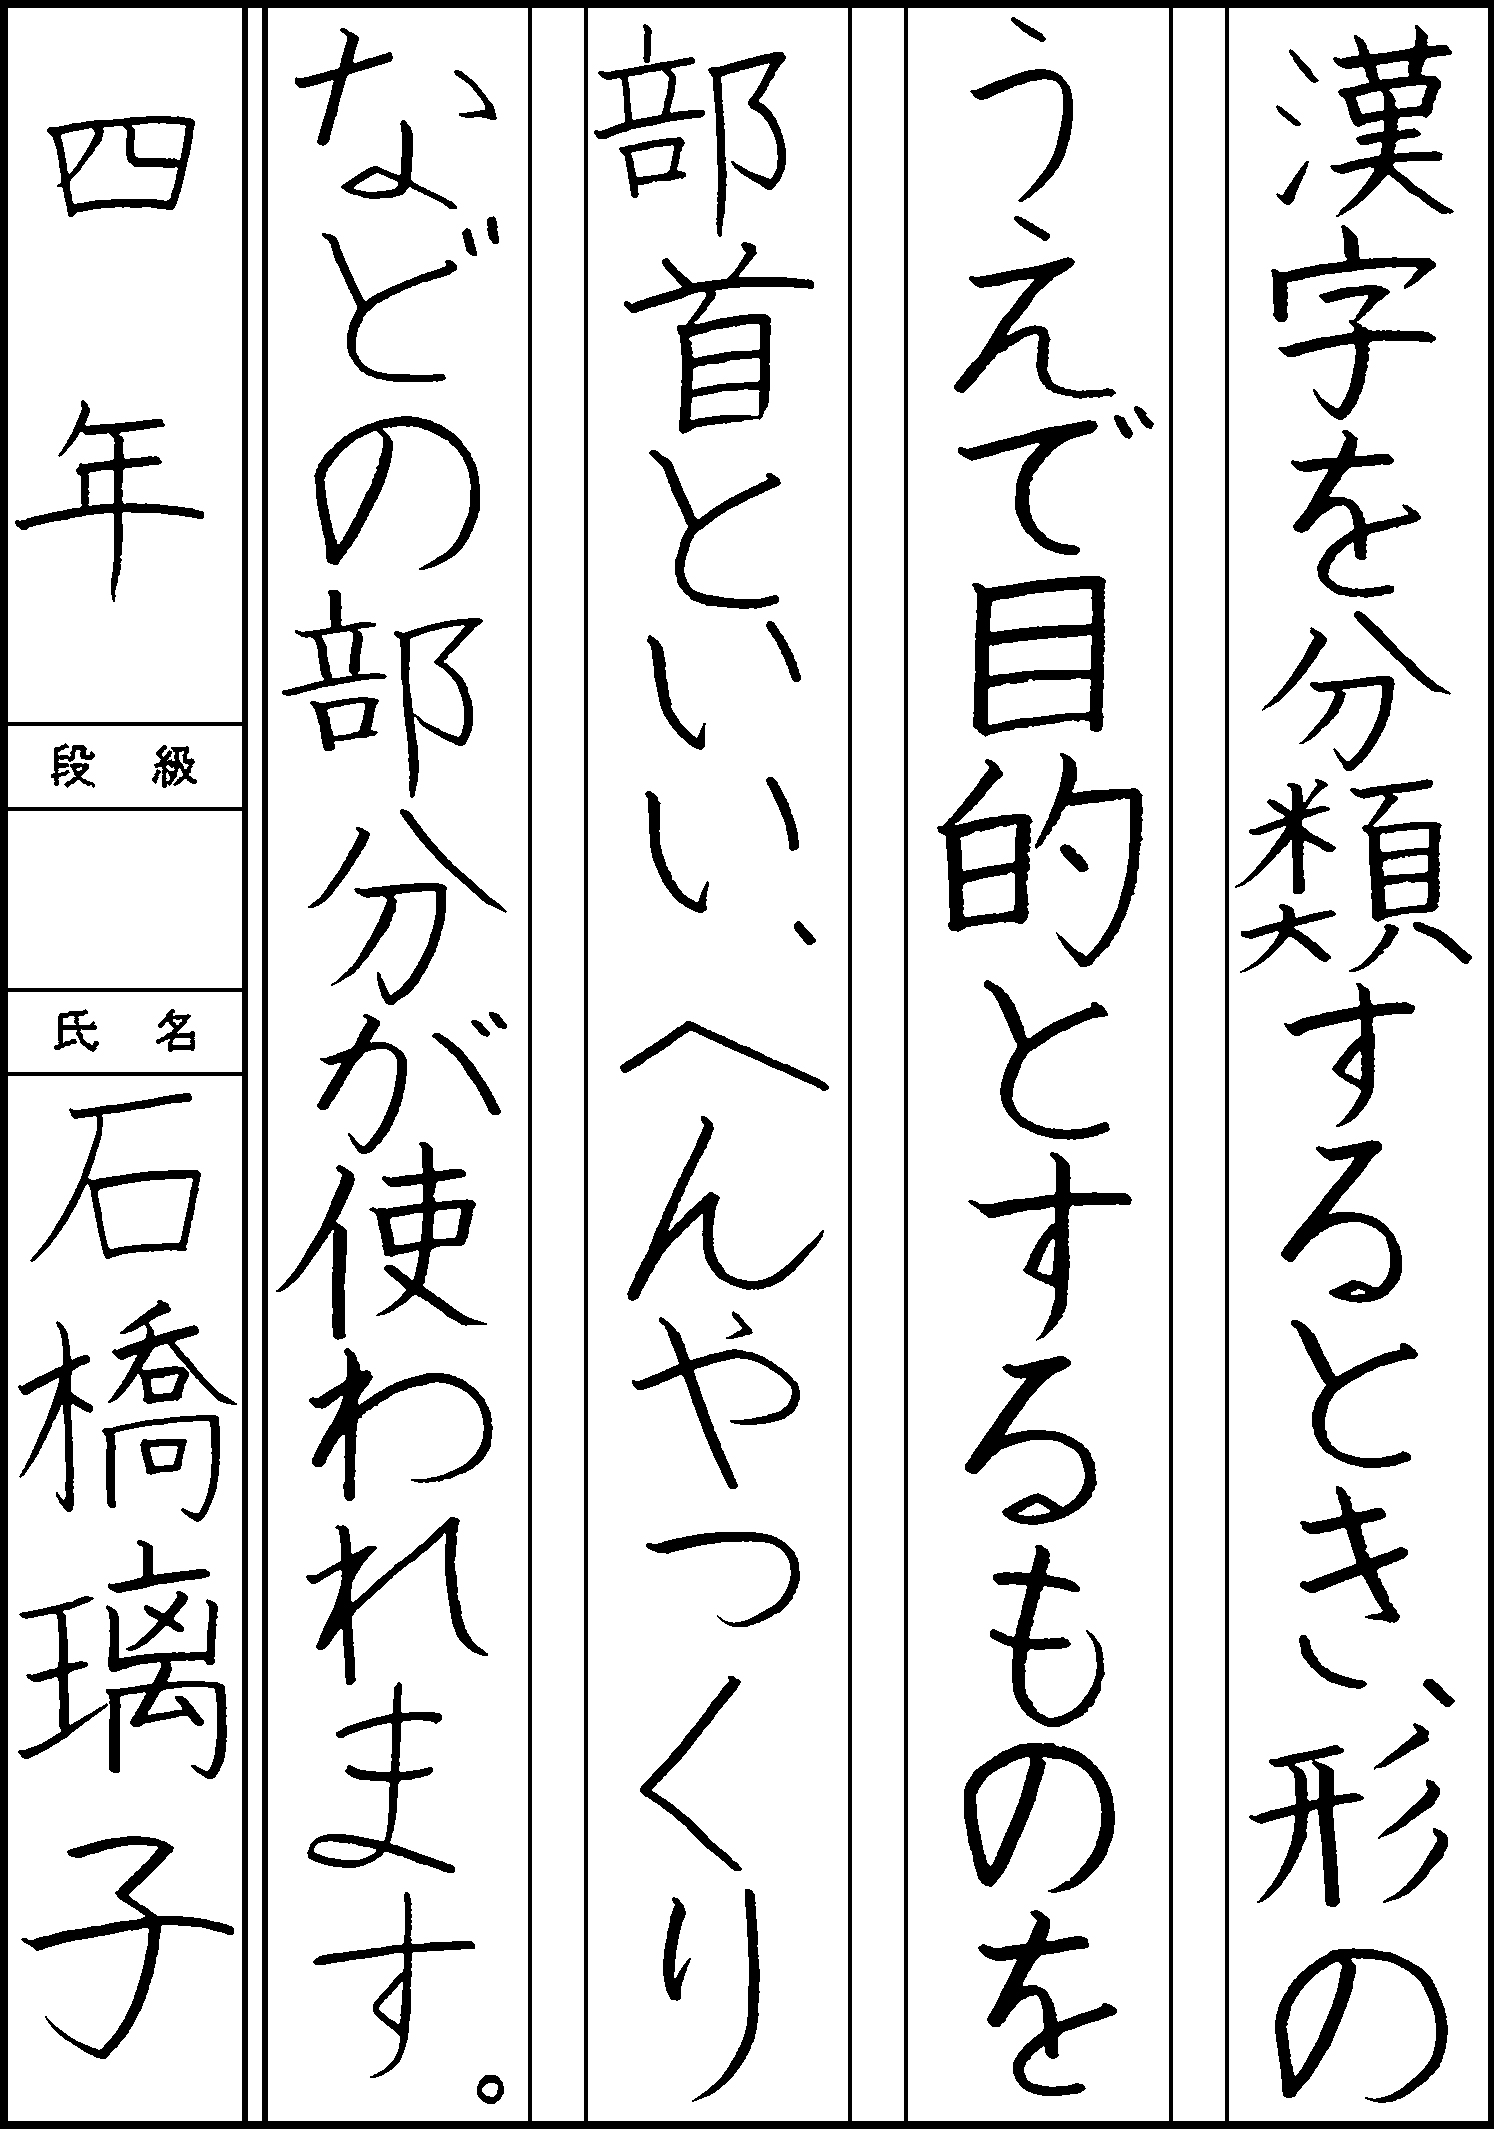 漢字を分類するとき、形の
うえで目的とするものを
部首といい、へんやつくり
などの部分が使われます。
四年
段級
氏名
石橋璃子